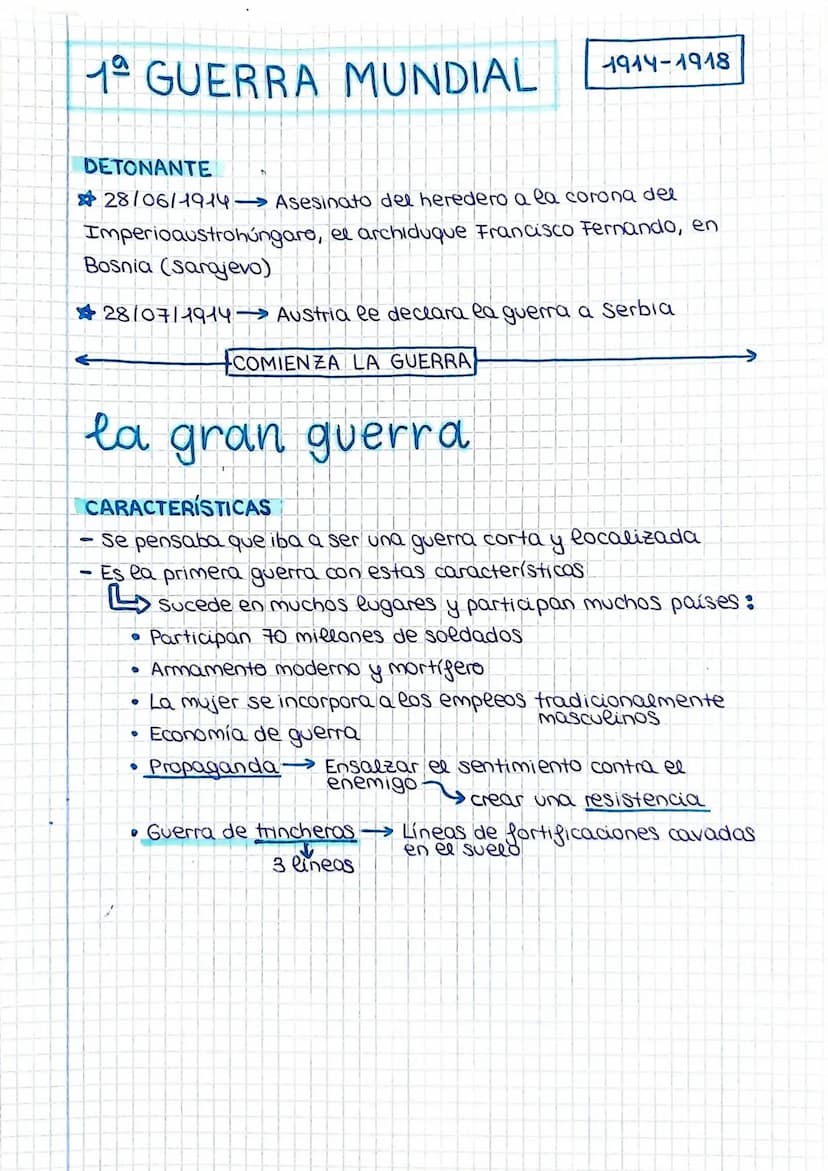 1ª GUERRA MUNDIAL
1914-1918
DETONANTE
☆ 28/06/1914 → Asesinato del heredero a la corona del
Imperioaustrohúngaro, el archiduque Francisco Fernando, en
Bosnia (Sarajevo)
☆ 28/07/1914 → Austria le declara la guerra a Serbia
COMIENZA LA GUERRA
la gran guerra
CARACTERÍSTICAS
- Se pensaba que iba a ser una guerra corta y localizada
- Es la primera guerra con estas características
↳ Sucede en muchos lugares y participan muchos países:
• Participan 70 millones de soldados
• Armamento moderno y mortífero
• La mujer se incorpora a los empleos tradicionalmente
masculinos
• Economía de guerra
• Propaganda → Ensalzar el sentimiento contra el
enemigo
→ crear una resistencia
• Guerra de trincheras → Líneas de fortificaciones cavadas
en el suelo
↓
3 líneas